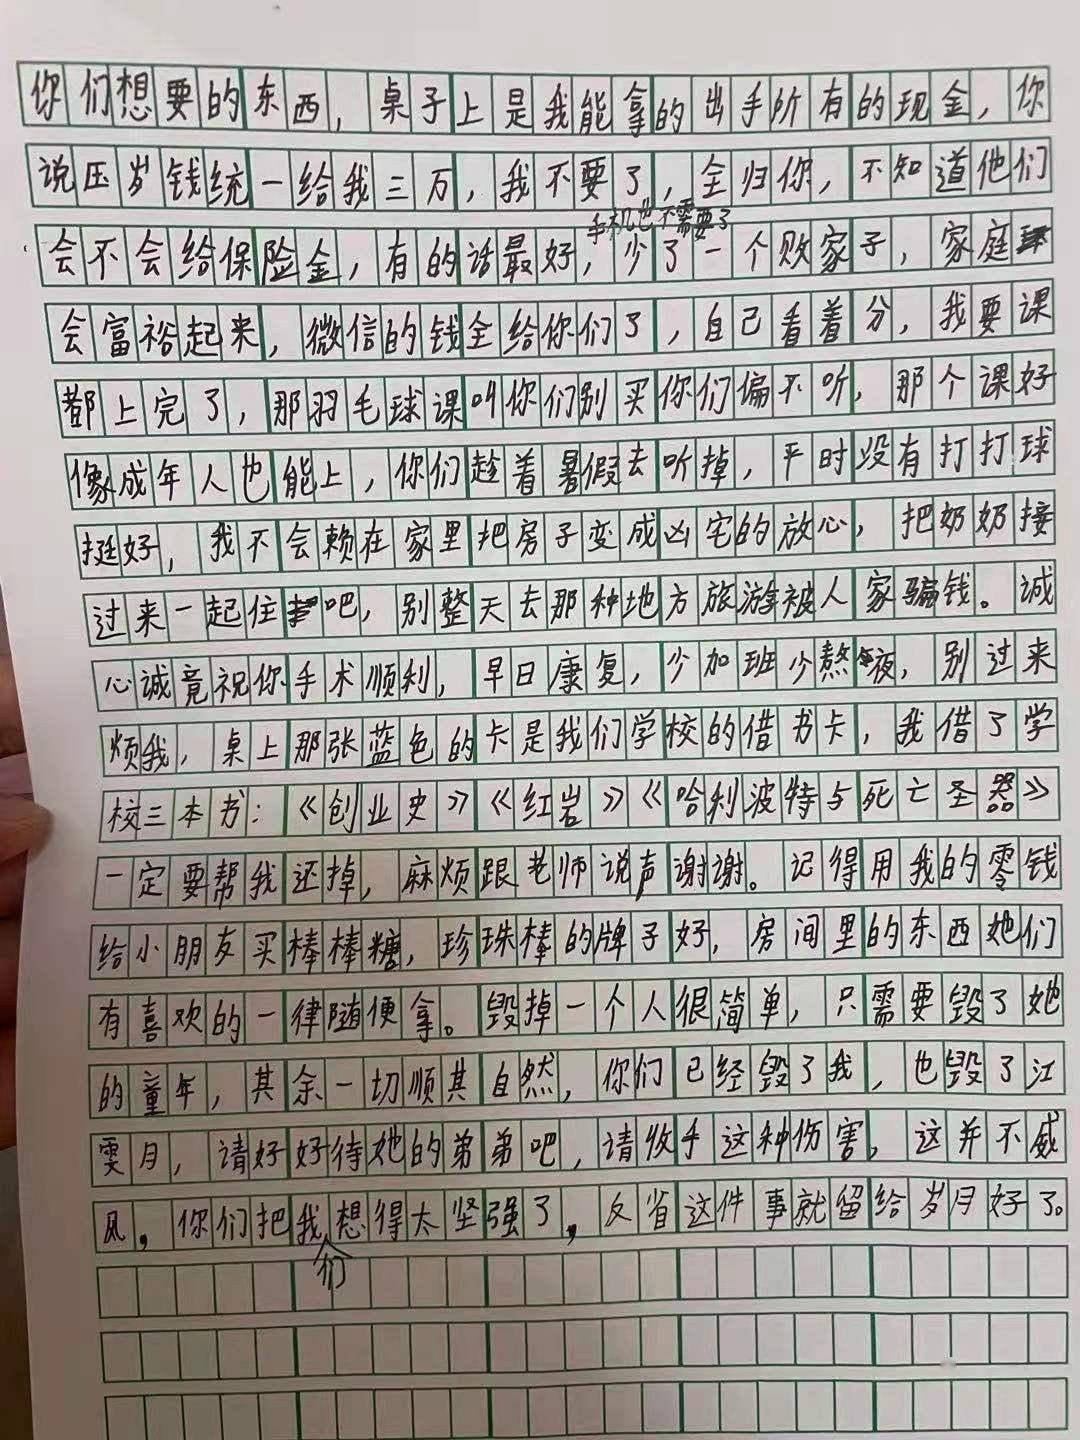 你们想要的东西，桌子上是我能拿的出手所有的现金，你
说压岁钱统一给我三万，我不要了，全归你，不知道他们
手机也不需要了
会不会给保险金，有的话最好，少了一个败家子，家庭
会富裕起来，微信的钱全给你们了，自己看着分，我要课
都上完了，那羽毛球课叫你们别买你们偏不听，那个课好
像成年人也能上，你们趁着暑假去听掉，平时没有打打球
挺好，我不会赖在家里把房子变成凶宅的放心，把奶奶接
过来一起住吧，别整天去那种地方旅游被人家骗钱。诚
心诚竟祝你手术顺利，早日康复，少加班少熬夜，别过来
烦我，桌上那张蓝色的卡是我们学校的借书卡，我借了学
校三本书：《创业史》《红岩》《哈利波特与死亡圣器》
一定要帮我还掉，麻烦跟老师说声谢谢。记得用我的零钱
给小朋友买棒棒糖，珍珠棒的牌子好，房间里的东西她们
有喜欢的一律随便拿。毁掉一个人很简单，只需要毁了她
的童年，其余一切顺其自然，你们已经毁了我，也毁了江
雯月，请好好待她的弟弟吧，请收手这种伤害，这并不威
风，你们把我想得太坚强了，反省这件事就留给岁月好了。
们